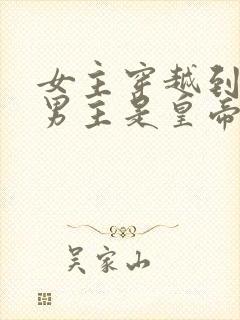 女主穿越到
男主是皇帝
吴家山